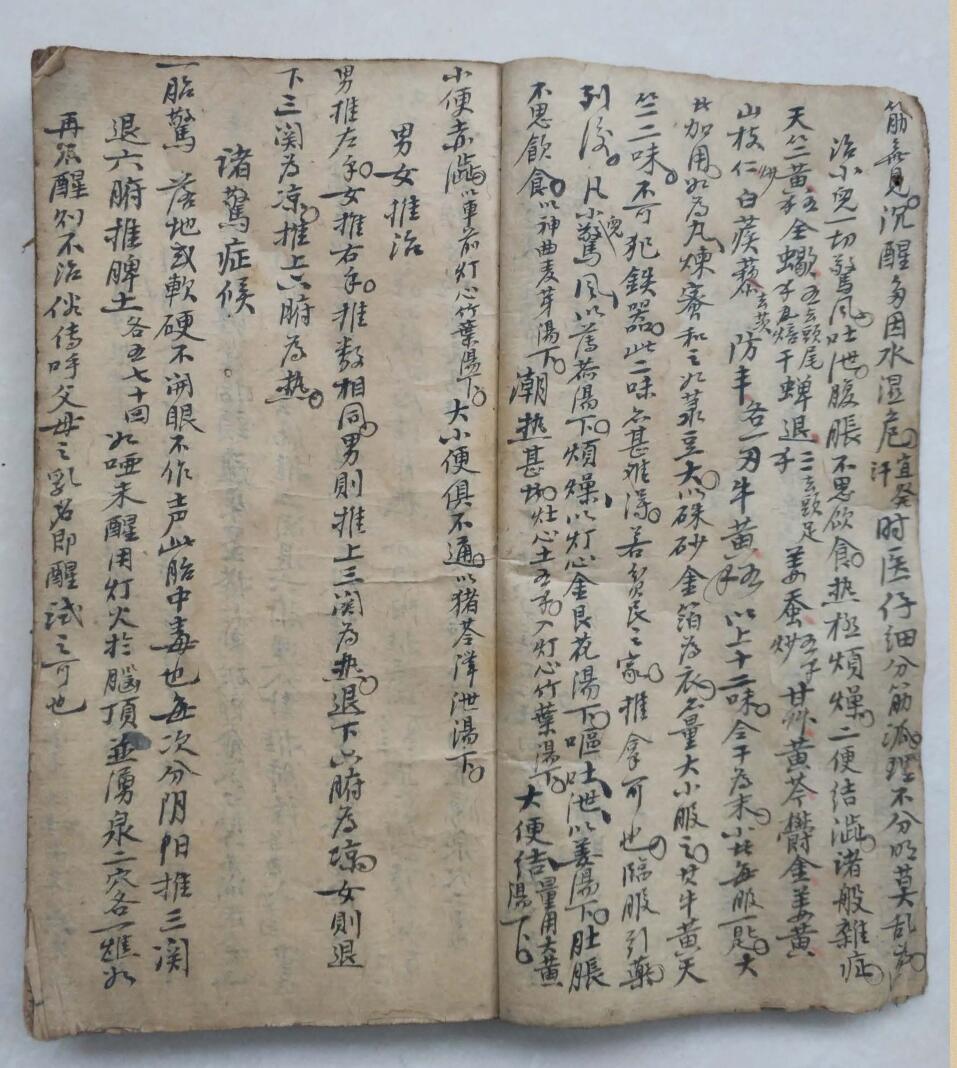 筋無見沉醒多因水湿危宜發汗时医仔细分筋脉理不分明莫乱為
治小兒一切驚风吐泄腹脹不思飲食热極煩燥二便结澁诸般雜症
天竺黄五子全蝎五子去頭尾焙干蝉退二子去頭足姜蚕五子炒甘草黄芩欝金姜黄
山枝仁炒白蒺藜去茨防丰各一刃牛黄以上十二味全干為末小者每服一匙大
者加用如為丸煉蜜和之如菉豆大以硃砂金箔為衣量大小服之其牛黄天
竺二味不可犯鉄器此二味名甚难得若貧民之家推拿可也临服引藥
列後凡小兒驚风以薄荷湯下煩燥以灯心金艮花湯下嘔吐泄以姜湯下肚脹
不思飲食以神曲麦芽湯下潮热甚灶心土五子入灯心竹葉湯下大便结量用大黄湯下
小便赤澁以車前灯心竹葉湯下大小便俱不通以猪苓泽泄湯下
男女推治
男推左手女推右手推数相同男則推上三関為热退下六腑為凉女則退
下三関為凉推上六腑為热
诸驚症候
一胎驚 落地或軟硬不開眼不作声此胎中毒也每次分阴阳推三関
退六腑推脾土各五七十回如哑未醒用灯火於腦頂並湧泉二穴各一燋如
再不醒則不治俗传呼父母之乳名即醒試之可也